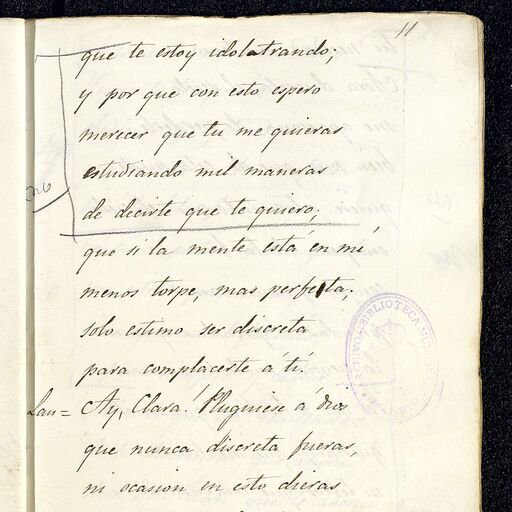 11
que te estoy idolatrando;
y por que con esto espero
merecer que tu me quieras
estudiando mil maneras
no
de decirte que te quiero;
que si la mente está en mi
menos torpe, mas perfecta;
solo estimo ser discreta
para complacerte á tí.
Lau = Ay, Clara! Pluguiese á dios
que nunca discreta fueras,
ni ocasion en esto dieras
BIBLIOTECA